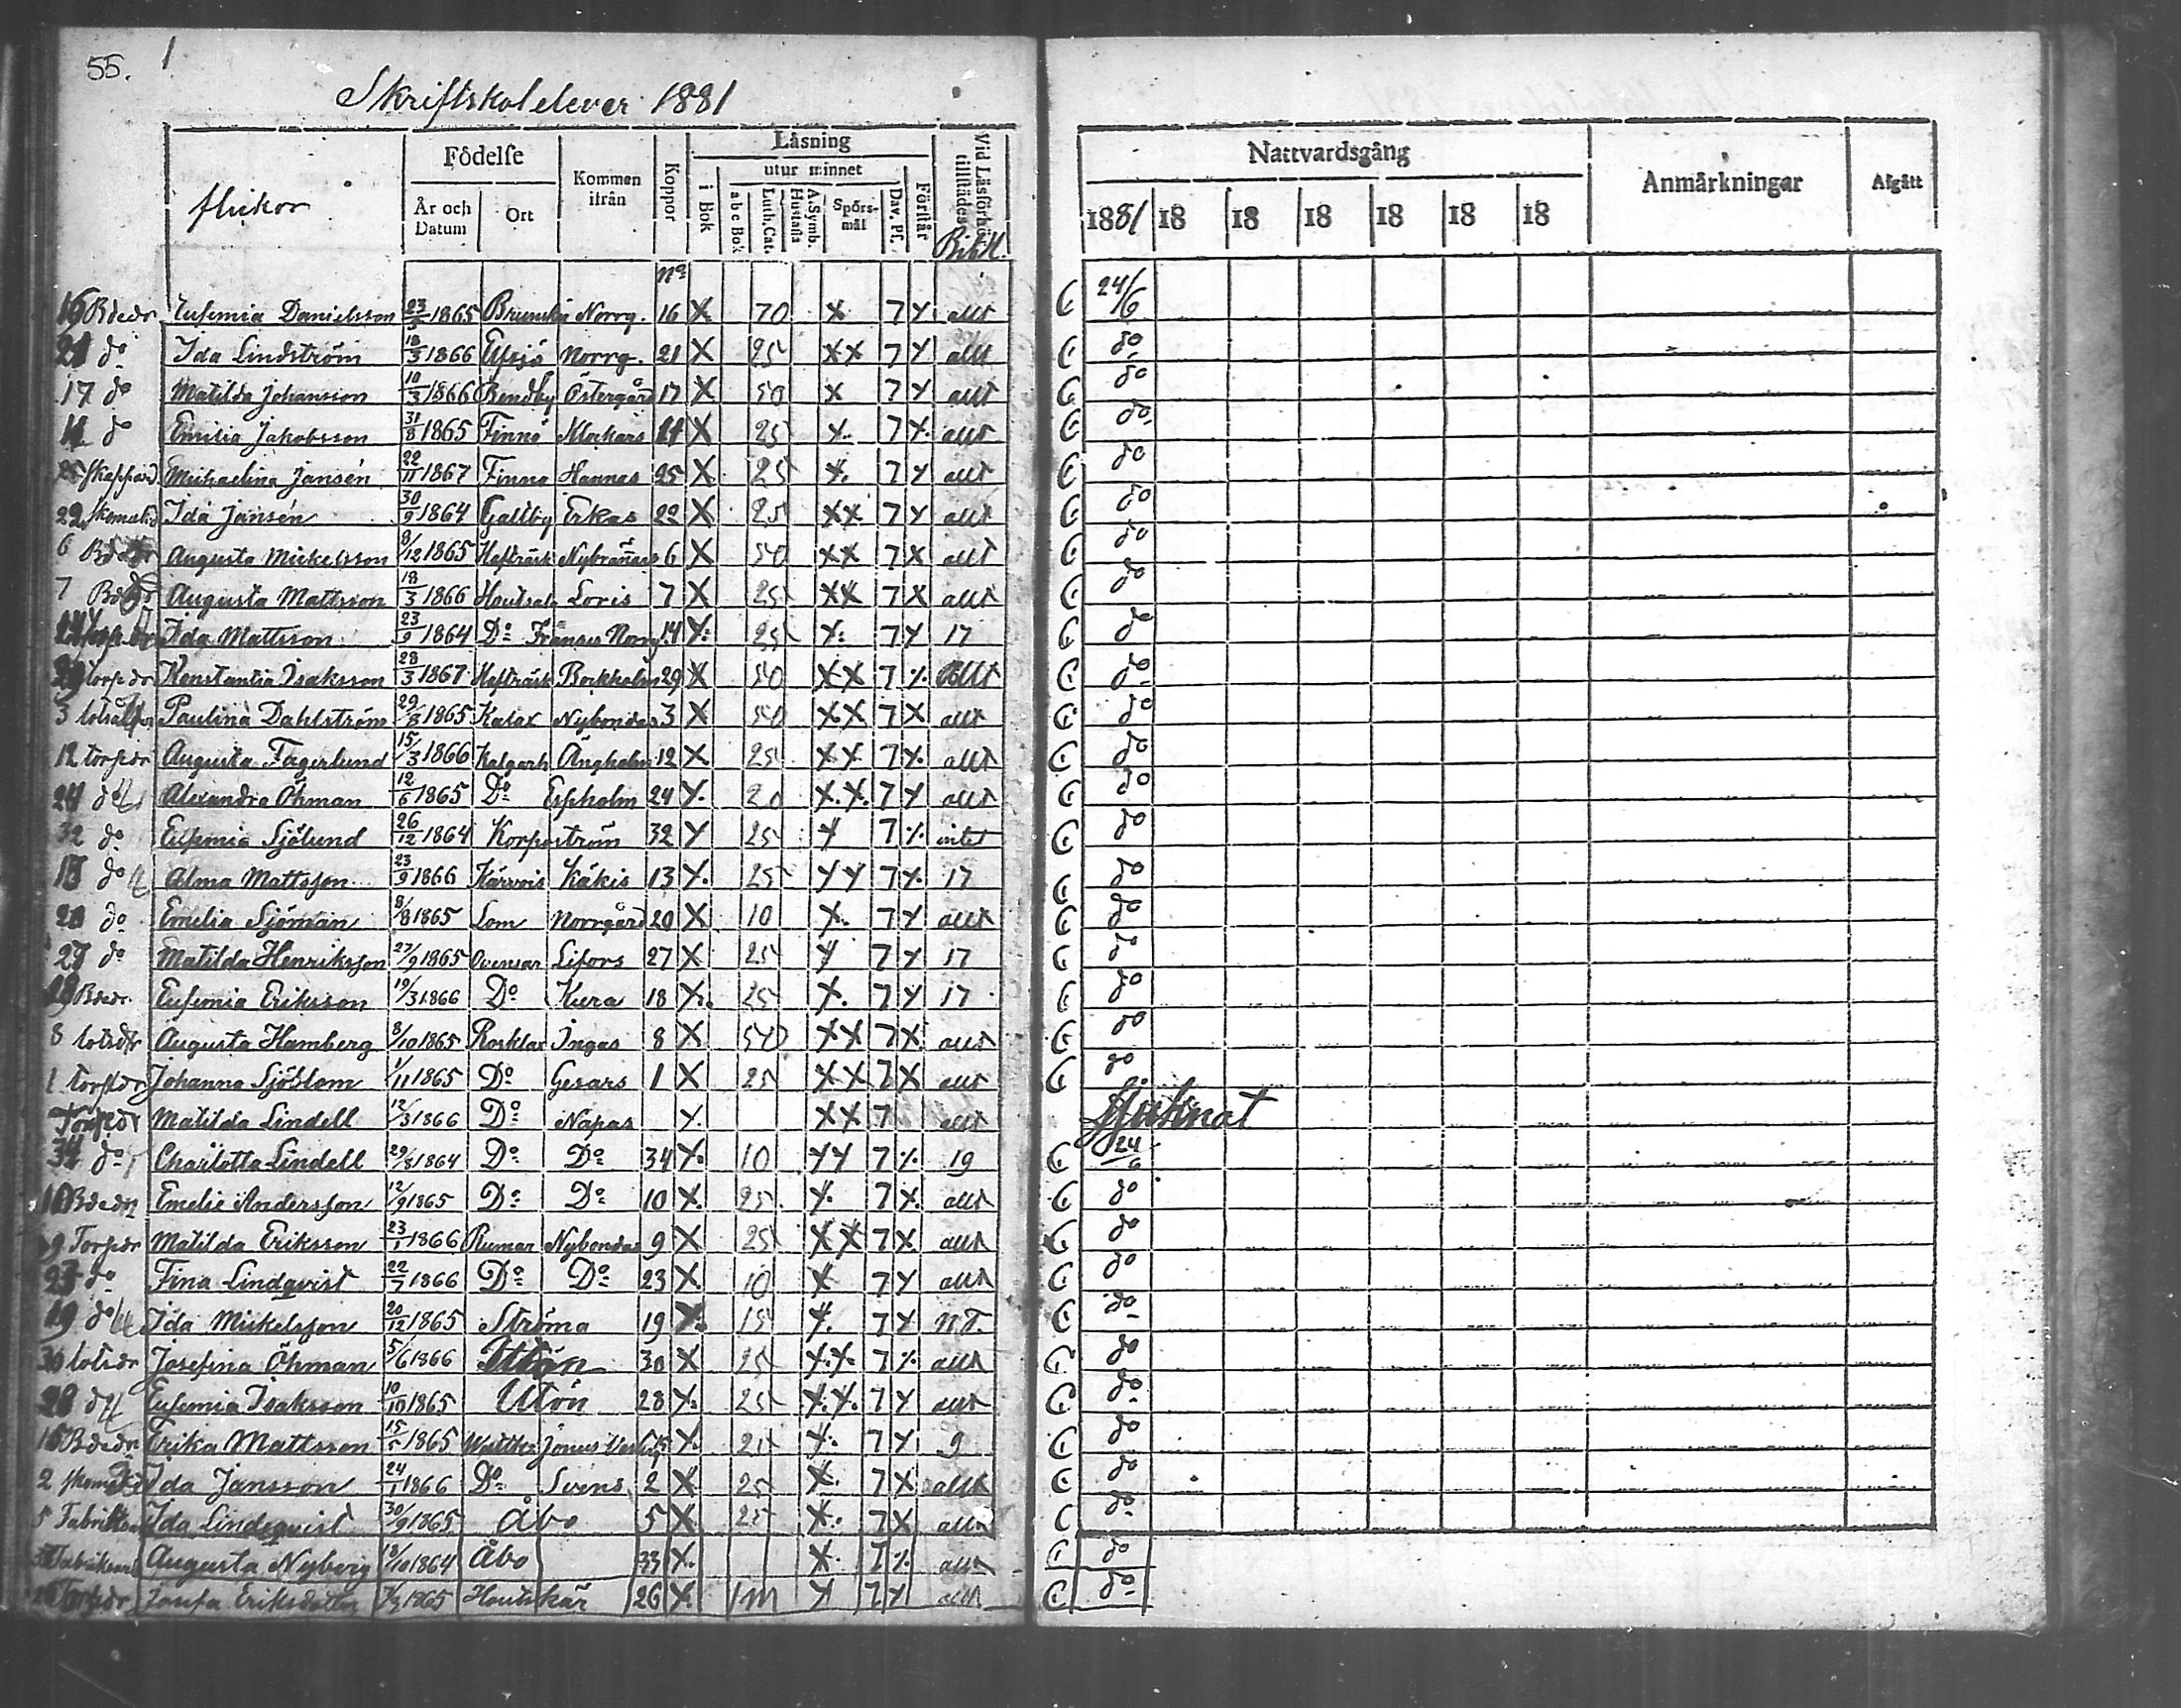 55. 1
Skriftskolelever 1881
flickor Födelse År och Datum Ort Kommen ifrån Koppor Läsning i Bok utur minnet abc Bok Luth. Cat. A. Symb. Hustafla Spörsmål Dav. Ps. Förstår Vid Läsförhör tillstädes Bibl. H. Nattvardsgång 1881 18 18 18 18 18 18 Anmärkningar Afgått
No
16 Bdedr Eufemia Danielsson 1865 Norrg. 16 X 70 X 7 X allt 24/6
21 do Ida Lindström 18/3 1866 Elfsjö Norrg. 21 X 25 XX 7 X allt do
17 do Matilda Johansson 10/3 1866 Bendby Östergård 17 X 50 X 7 X allt do
11 do Emilia Jakobsson 31/8 1865 Finnö Klockars 11 X 25 X 7 X allt do
25 Mikaelina Jansén 22/11 1867 Finnö Hannas 25 X 25 X 7 X allt do
22 Ida Jansén 30/9 1864 Galtby Erkas 22 X 25 XX 7 X allt do
6 Augusta Mickelsson 8/12 1865 Hafträsk 6 X 50 XX 7 X allt do
7 Augusta Mattsson 18/3 1866 Houtsala Loris 7 X 25 XX 7 X allt do
Ida Mattsson 23/9 1864 Do Norrg. 14 X 25 X 7 X 17 do
29 torpdr Konstantia Isaksson 28/3 1867 Hafträsk Bockholm 29 X 50 XX 7 % allt do
3 Paulina Dahlström 29/8 1865 Kalax Nybondas 3 X 50 XX 7 X allt do
12 torpdr Augusta Fagerlund 15/3 1866 Ängholm 12 X 25 XX 7 X allt do
24 do Alexandra Öhman 12/6 1865 Do Espholm 24 X 20 X.X. 7 X allt do
32 do Eufemia Sjölund 26/12 1864 Korpoström 32 X 25 X 7 % intet do
13 do Alma Mattsson 23/9 1866 Kärvois Käkis 13 X 25 XX 7 X 17 do
20 do Emelia Sjöman 8/8 1865 Lom Norrgård 20 X 10 X. 7 X allt do
27 do Matilda Henriksson 27/9 1865 Lifors 27 X 25 X 7 X 17 do
18 Bdedr Eufemia Eriksson 19/3 1866 Do Kura 18 X. 25 X. 7 X 17 do
8 lotsdr Augusta Hamberg 8/10 1865 Rosklax Ingas 8 X 50 XX 7 X. allt do
1 torpdr Johanna Sjöblom 1/11 1865 Do Gesars 1 X 25 XX 7 X allt do
Torpdr Matilda Lindell 12/3 1866 Do Napas X. XX 7 allt Sjuknat
34 do Charlotta Lindell 29/8 1864 Do Do 34 X. 10 XX 7 % 19 24/6
10 Bdedr Emelie Andersson 12/9 1865 Do Do 10 X. 25. X. 7 X. allt do
9 Torpdr Matilda Eriksson 23/1 1866 Rumar Nybondas 9 X 25 XX 7 X. allt do
23 do Fina Lindqvist 22/7 1866 Do Do 23 X 10 X 7 X allt do
19 do Ida Mickelsson 20/12 1865 Ströma 19 X. 15 X. 7 X N.T. do
30 lotsdr Josefina Öhman 5/6 1866 Utön 30 X 25 X.X. 7 % allt do
28 Eufemia Isaksson 10/10 1865 Utön 28 X. 25 X.X. 7 X allt do
15 Bdedr Erika Mattsson 1865 15 X. X. 7 X 9 do
2 Ida Jansson 24/1 1866 Do Svens 2 X 25 X. 7 X allt do
5 Ida Lindeqvist 30/9 1865 Åbo 5 X 25 X. 7 X allt do
33 Augusta Nyberg 18/10 1864 Åbo 33 X. X. 7 % allt do
26 Torpdr Josefa Eriksdotter 1865 Houtskär 26 X. 1m X 7 X allt do